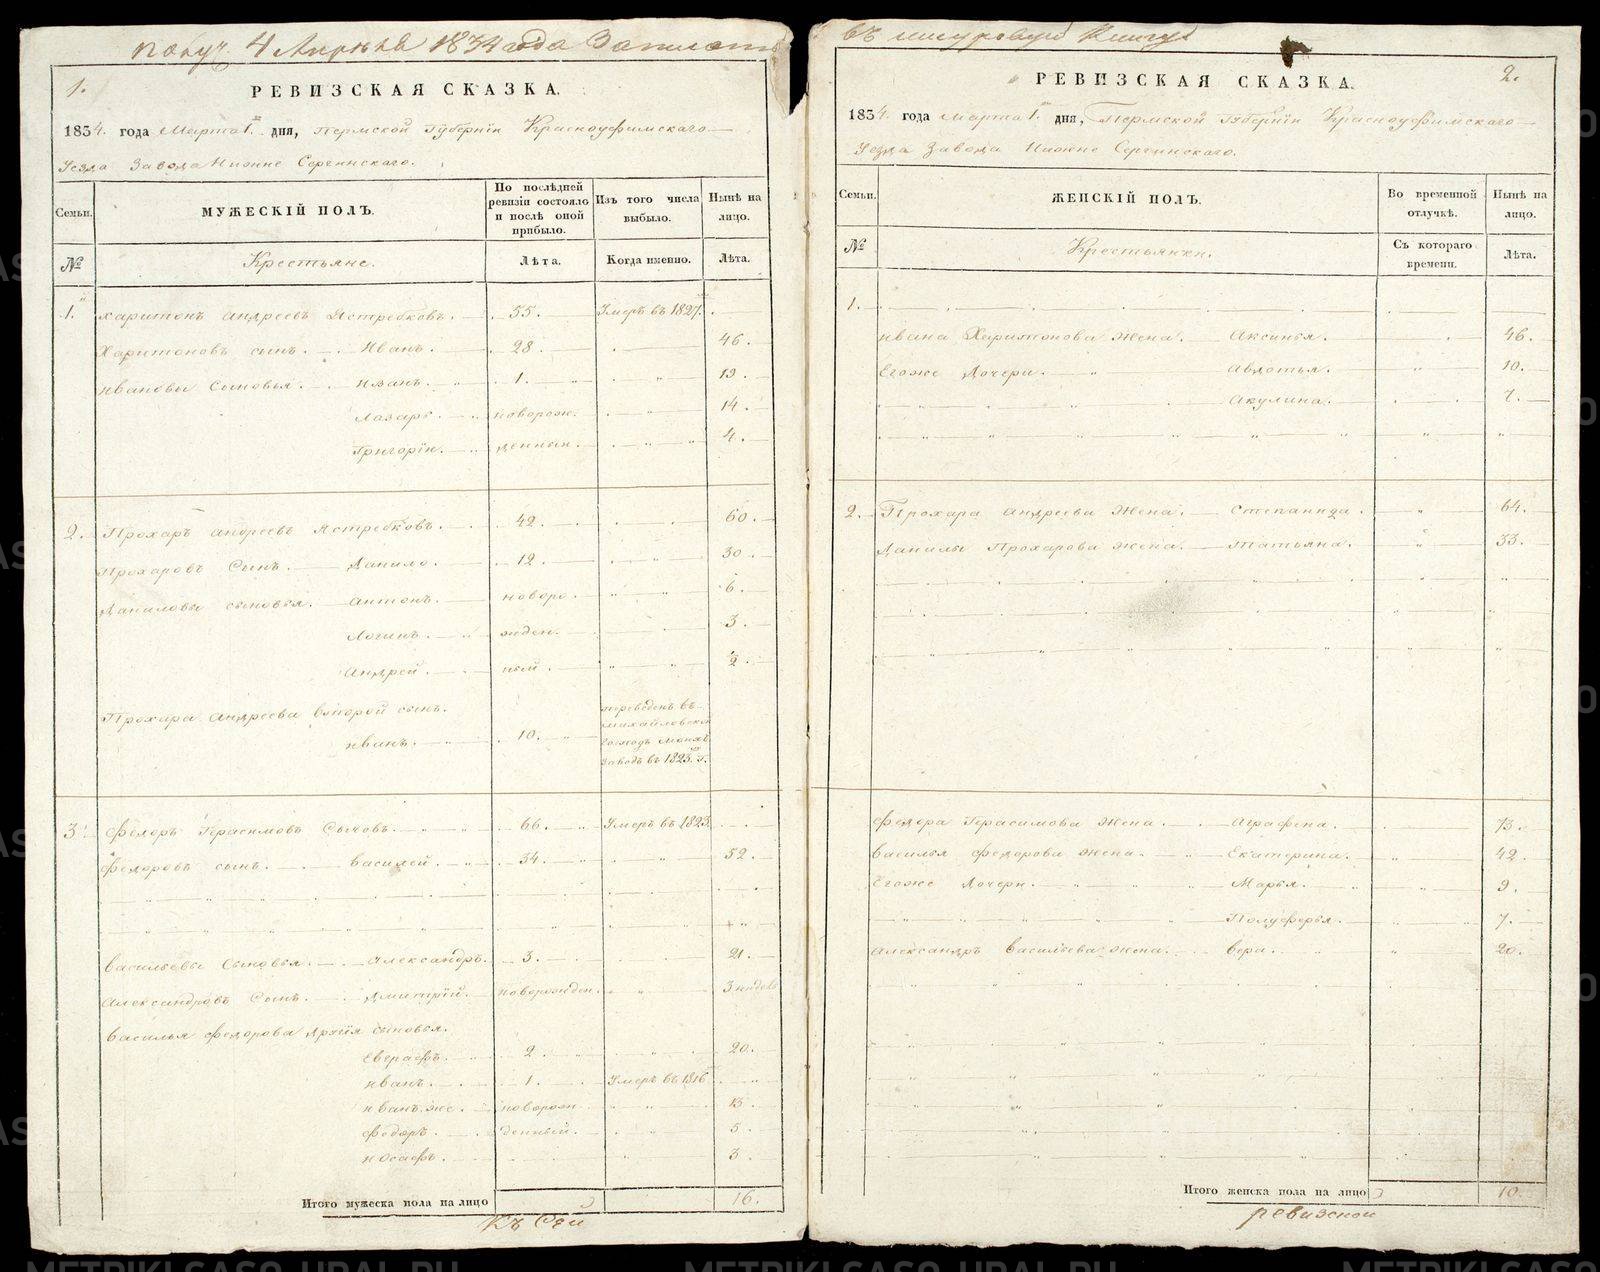 получ. 4 Апреля 1834 года Записать
1.
РЕВИЗСКАЯ СКАЗКА.
1834. года Марта 1. дня, Пермской Губернiи Красноуфимскаго
Уезда Завода Нижне Сергинскаго.
Семьи.
МУЖЕСКІЙ ПОЛЪ.
По послѣдней ревизіи состояло и послѣ оной прибыло.
Изъ того числа выбыло.
Нынѣ на лицо.
№
Крестьяне.
Лѣта.
Когда именно.
Лѣта.
1. Харитонъ Андреевъ Ястребковъ. 55. Умеръ въ 1827.
Харитоновъ сынъ. Иванъ. 28. 46.
Ивановы Сыновья. Иванъ. 1. 19.
Лазарь. новорож. 14.
Григорій. денныи. 4.
2. Прохоръ Андреевъ Ястребковъ. 42. 60.
Прохоровъ Сынъ. Данило. 12. 30.
Даниловы сыновья. Антонъ. новоро. 6.
Логинъ. жден. 3.
Андрей. ный. 2.
Прохара Андреева второй сынъ.
Иванъ. 10. переведенъ въ Михайловской завод въ 1823. г.
3. Федоръ Герасимовъ Сычовъ. 66. Умеръ въ 1823
Федоровъ сынъ. Василей. 34. 52.
Васильевы Сыновья. Александръ. 3. 21.
Александровъ Сынъ. Дмитрій. новорожден. 3 недел
Василья Федорова другiя сыновья.
Евграфъ. 2. 20.
Иванъ. 1. Умеръ въ 1816
Иванъ же. новорож. 13.
Федоръ. денный. 5.
Иосафъ. 3.
Итого мужеска пола на лицо 16.
Къ Сей
въ шнуровую Книгу
2.
РЕВИЗСКАЯ СКАЗКА.
1834. года Марта 1. дня, Пермской Губернiи Красноуфимскаго
Уезда Завода Нижне Сергинскаго.
Семьи.
ЖЕНСКІЙ ПОЛЪ.
Во временной отлучкѣ.
Нынѣ на лицо.
№
Крестьянки.
Съ котораго времени.
Лѣта.
1.
Ивана Харитонова жена. Аксинья. 46.
Егоже Дочери. Авдотья. 10.
Акулина. 7.
2. Прохара Андреева Жена. Степанида. 64.
Данилы Прохарова жена. Татьяна. 33.
Федора Герасимова жена. Аграфена. 73.
Василья Федорова жена. Екатерина. 42.
Егоже Дочери. Марья. 9.
Полуферья. 7.
Александръ Васильева жена. Вера. 20.
Итого женска пола на лицо 10.
ревизской